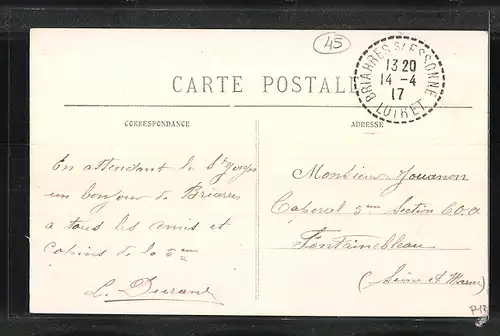 45
BRIARRES S/ ESSONNE
13 20
14 - 4
17
LOIRET
CARTE POSTALE
CORRESPONDANCE
ADRESSE
En attendant la St Georges
un bonjour de Briarres
a tous les amis et
copins de la 5eme
L. Durand
Monsieur Jouanon
Caporal 5eme Section C.O.A
Fontainebleau
(Seine et Marne)
P-12